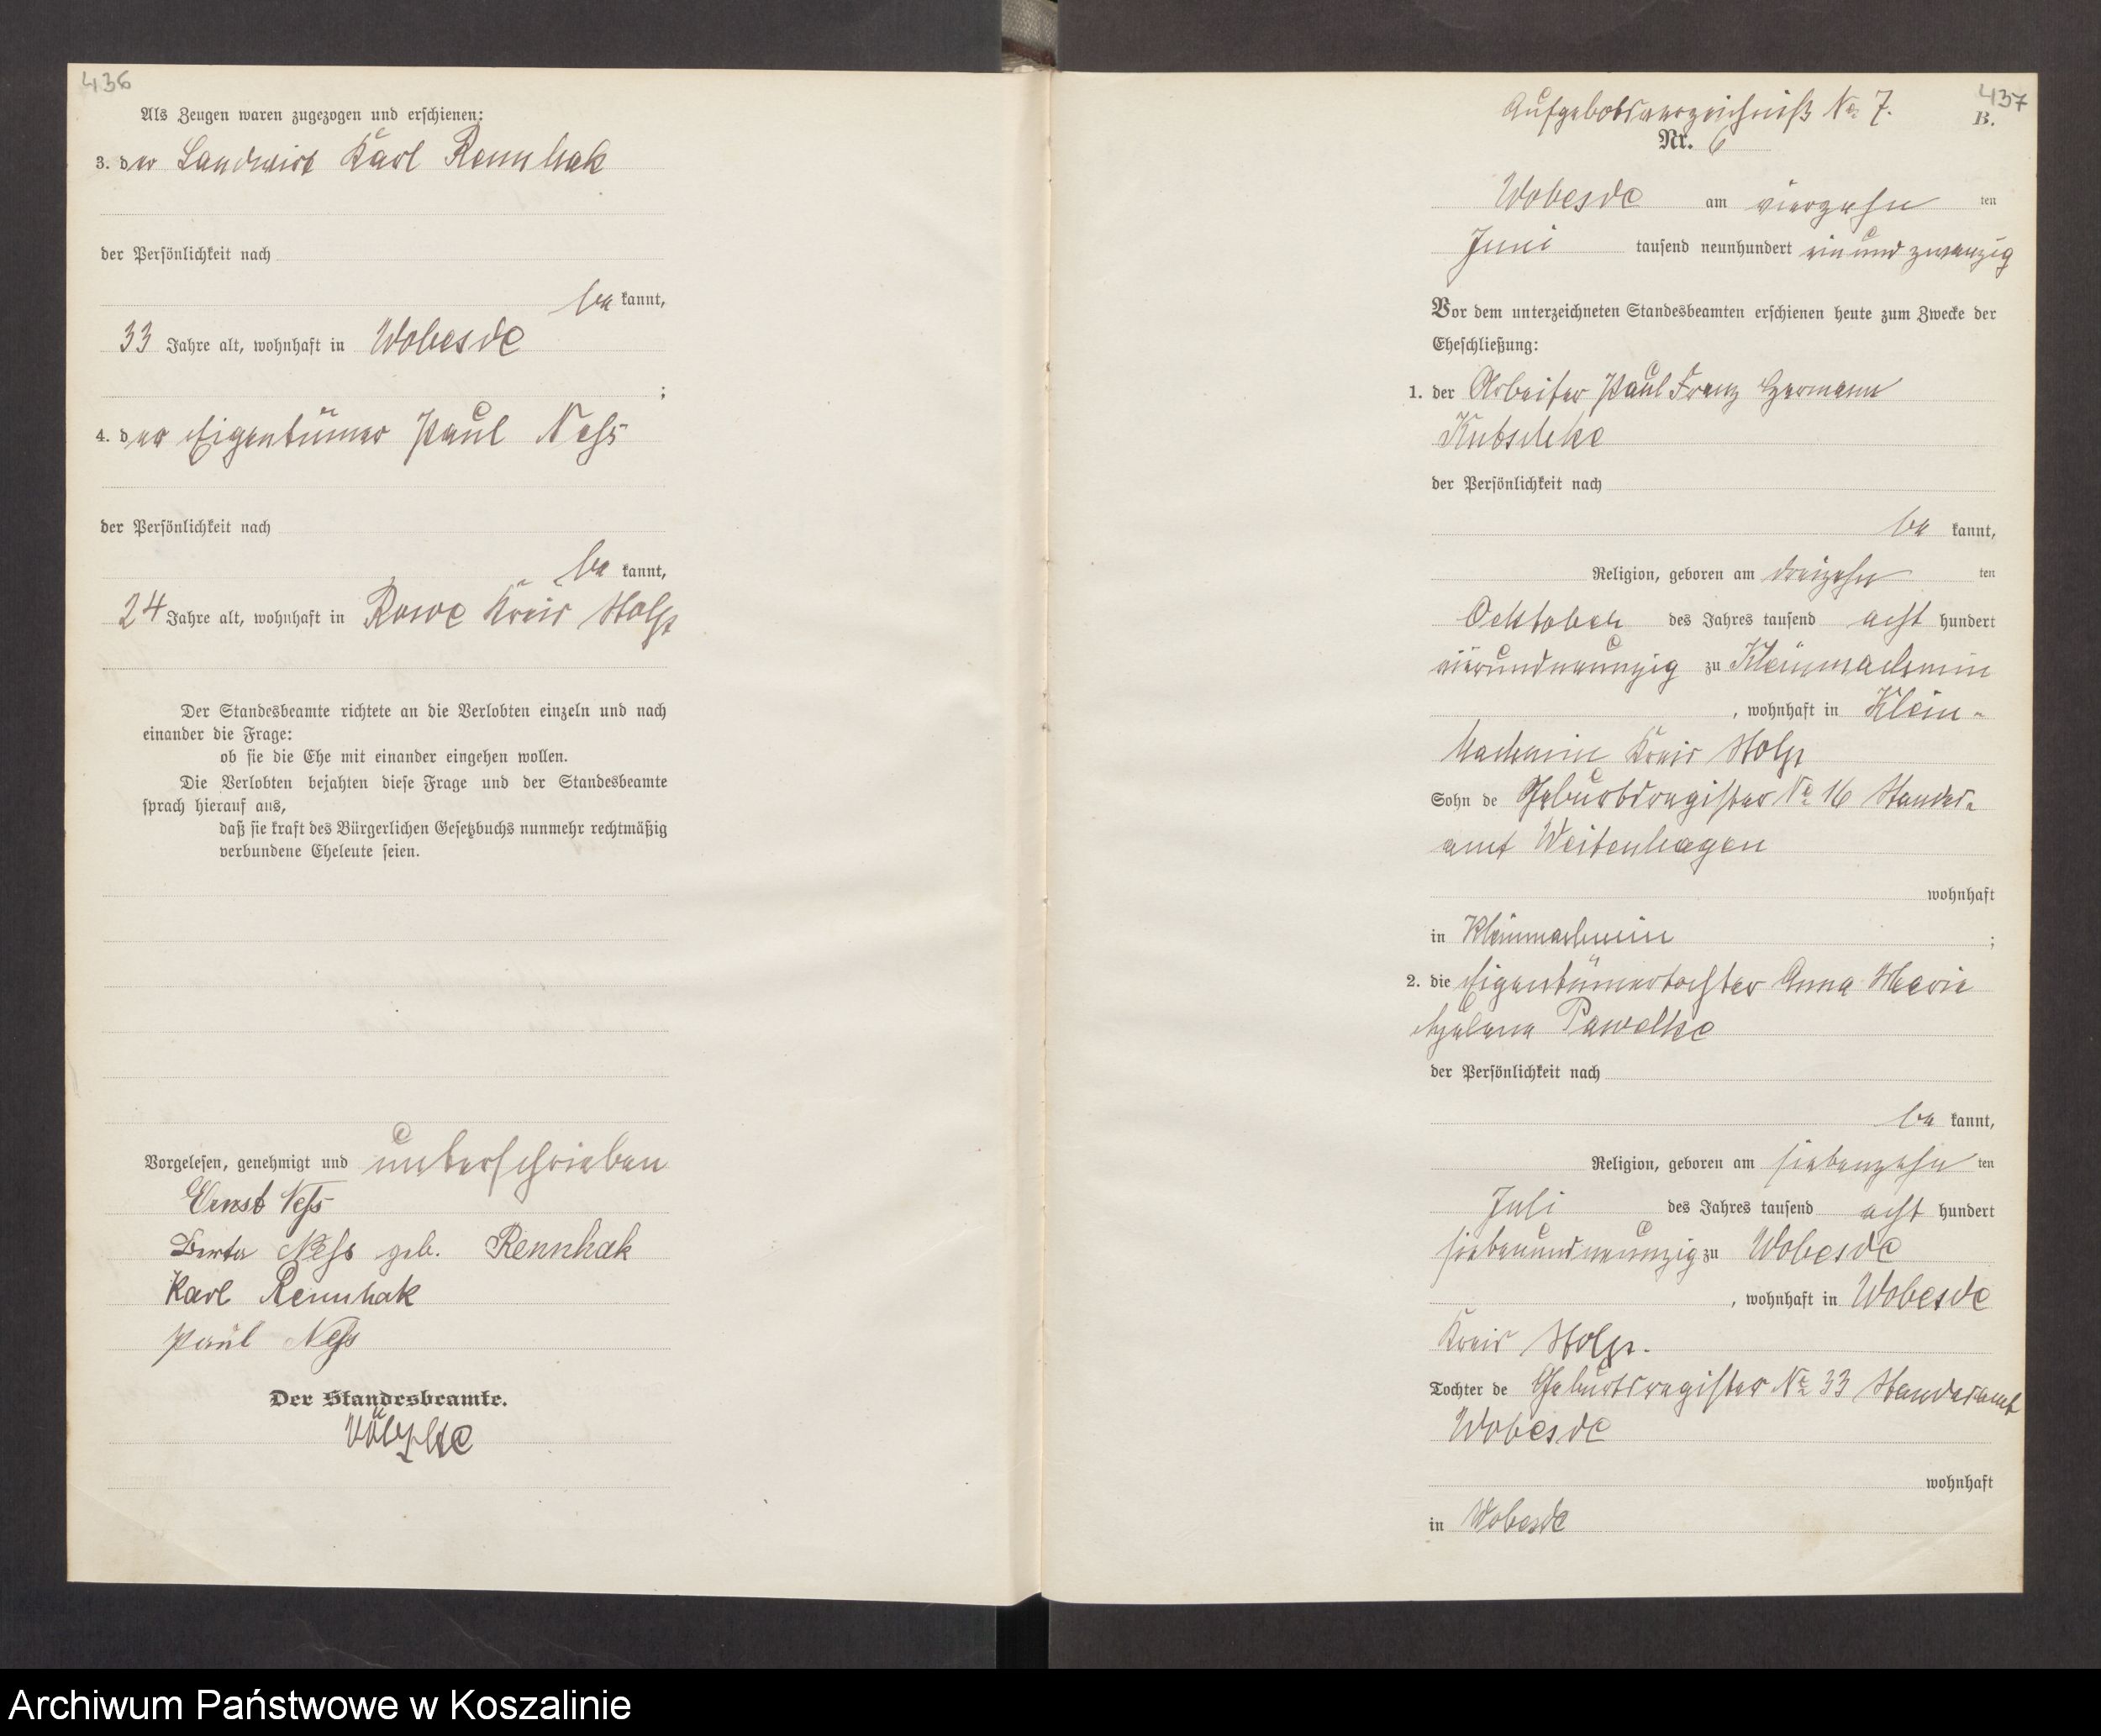 436
Als Zeugen waren zugezogen und erschienen:
3. der Landwirt Karl Rennhak
der Persönlichkeit nach
be kannt,
33 Jahre alt, wohnhaft in Wobesde
;
4. der Eigentümer Paul Neſs
der Persönlichkeit nach
be kannt,
24 Jahre alt, wohnhaft in Rowe Kreis Stolp
Der Standesbeamte richtete an die Verlobten einzeln und nach
einander die Frage:
ob sie die Ehe mit einander eingehen wollen.
Die Verlobten bejahten diese Frage und der Standesbeamte
sprach hierauf aus,
daß sie kraft des Bürgerlichen Gesetzbuchs nunmehr rechtmäßig
verbundene Eheleute seien.
Vorgelesen, genehmigt und unterschrieben
Ernst Neſs
Berta Neſs geb. Rennhak
Karl Rennhak
Paul Neſs
Der Standesbeamte.
437
Aufgebotsverzeichniß No 7.
B.
Nr. 6
Wobesde am vierzehn ten
Juni tausend neunhundert ein und zwanzig
Vor dem unterzeichneten Standesbeamten erschienen heute zum Zwecke der
Eheschließung:
1. der Arbeiter Paul Franz Hermann
Kutschke
der Persönlichkeit nach
be kannt,
Religion, geboren am dreizehn ten
Ocktober des Jahres tausend acht hundert
vierundneunzig zu Kleinmachmin
, wohnhaft in Klein-
Machmin Kreis Stolp
Sohn de Geburtsregister No 16 Standes-
amt Weitenhagen
wohnhaft
in Kleinmachmin ;
2. die Eigentümertochter Anna Marie
Helene Pawelke
der Persönlichkeit nach
be kannt,
Religion, geboren am siebenzehn ten
Juli des Jahres tausend acht hundert
siebenundneunzig zu Wobesde
, wohnhaft in Wobesde
Kreis Stolp.
Tochter de Geburtsregister No 33 Standesamt
Wobesde
wohnhaft
in Wobesde
Archiwum Państwowe w Koszalinie